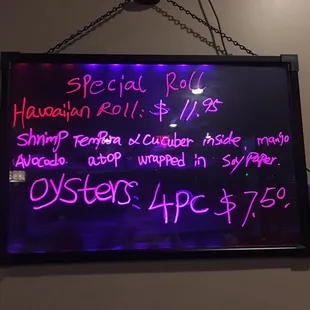 Special Roll
Hawaiian Roll: $ 11.95
Shrimp Tempura & Cucuber inside, mango
Avocado. atop wrapped in Soy Paper.
oysters: 4PC $7.50.